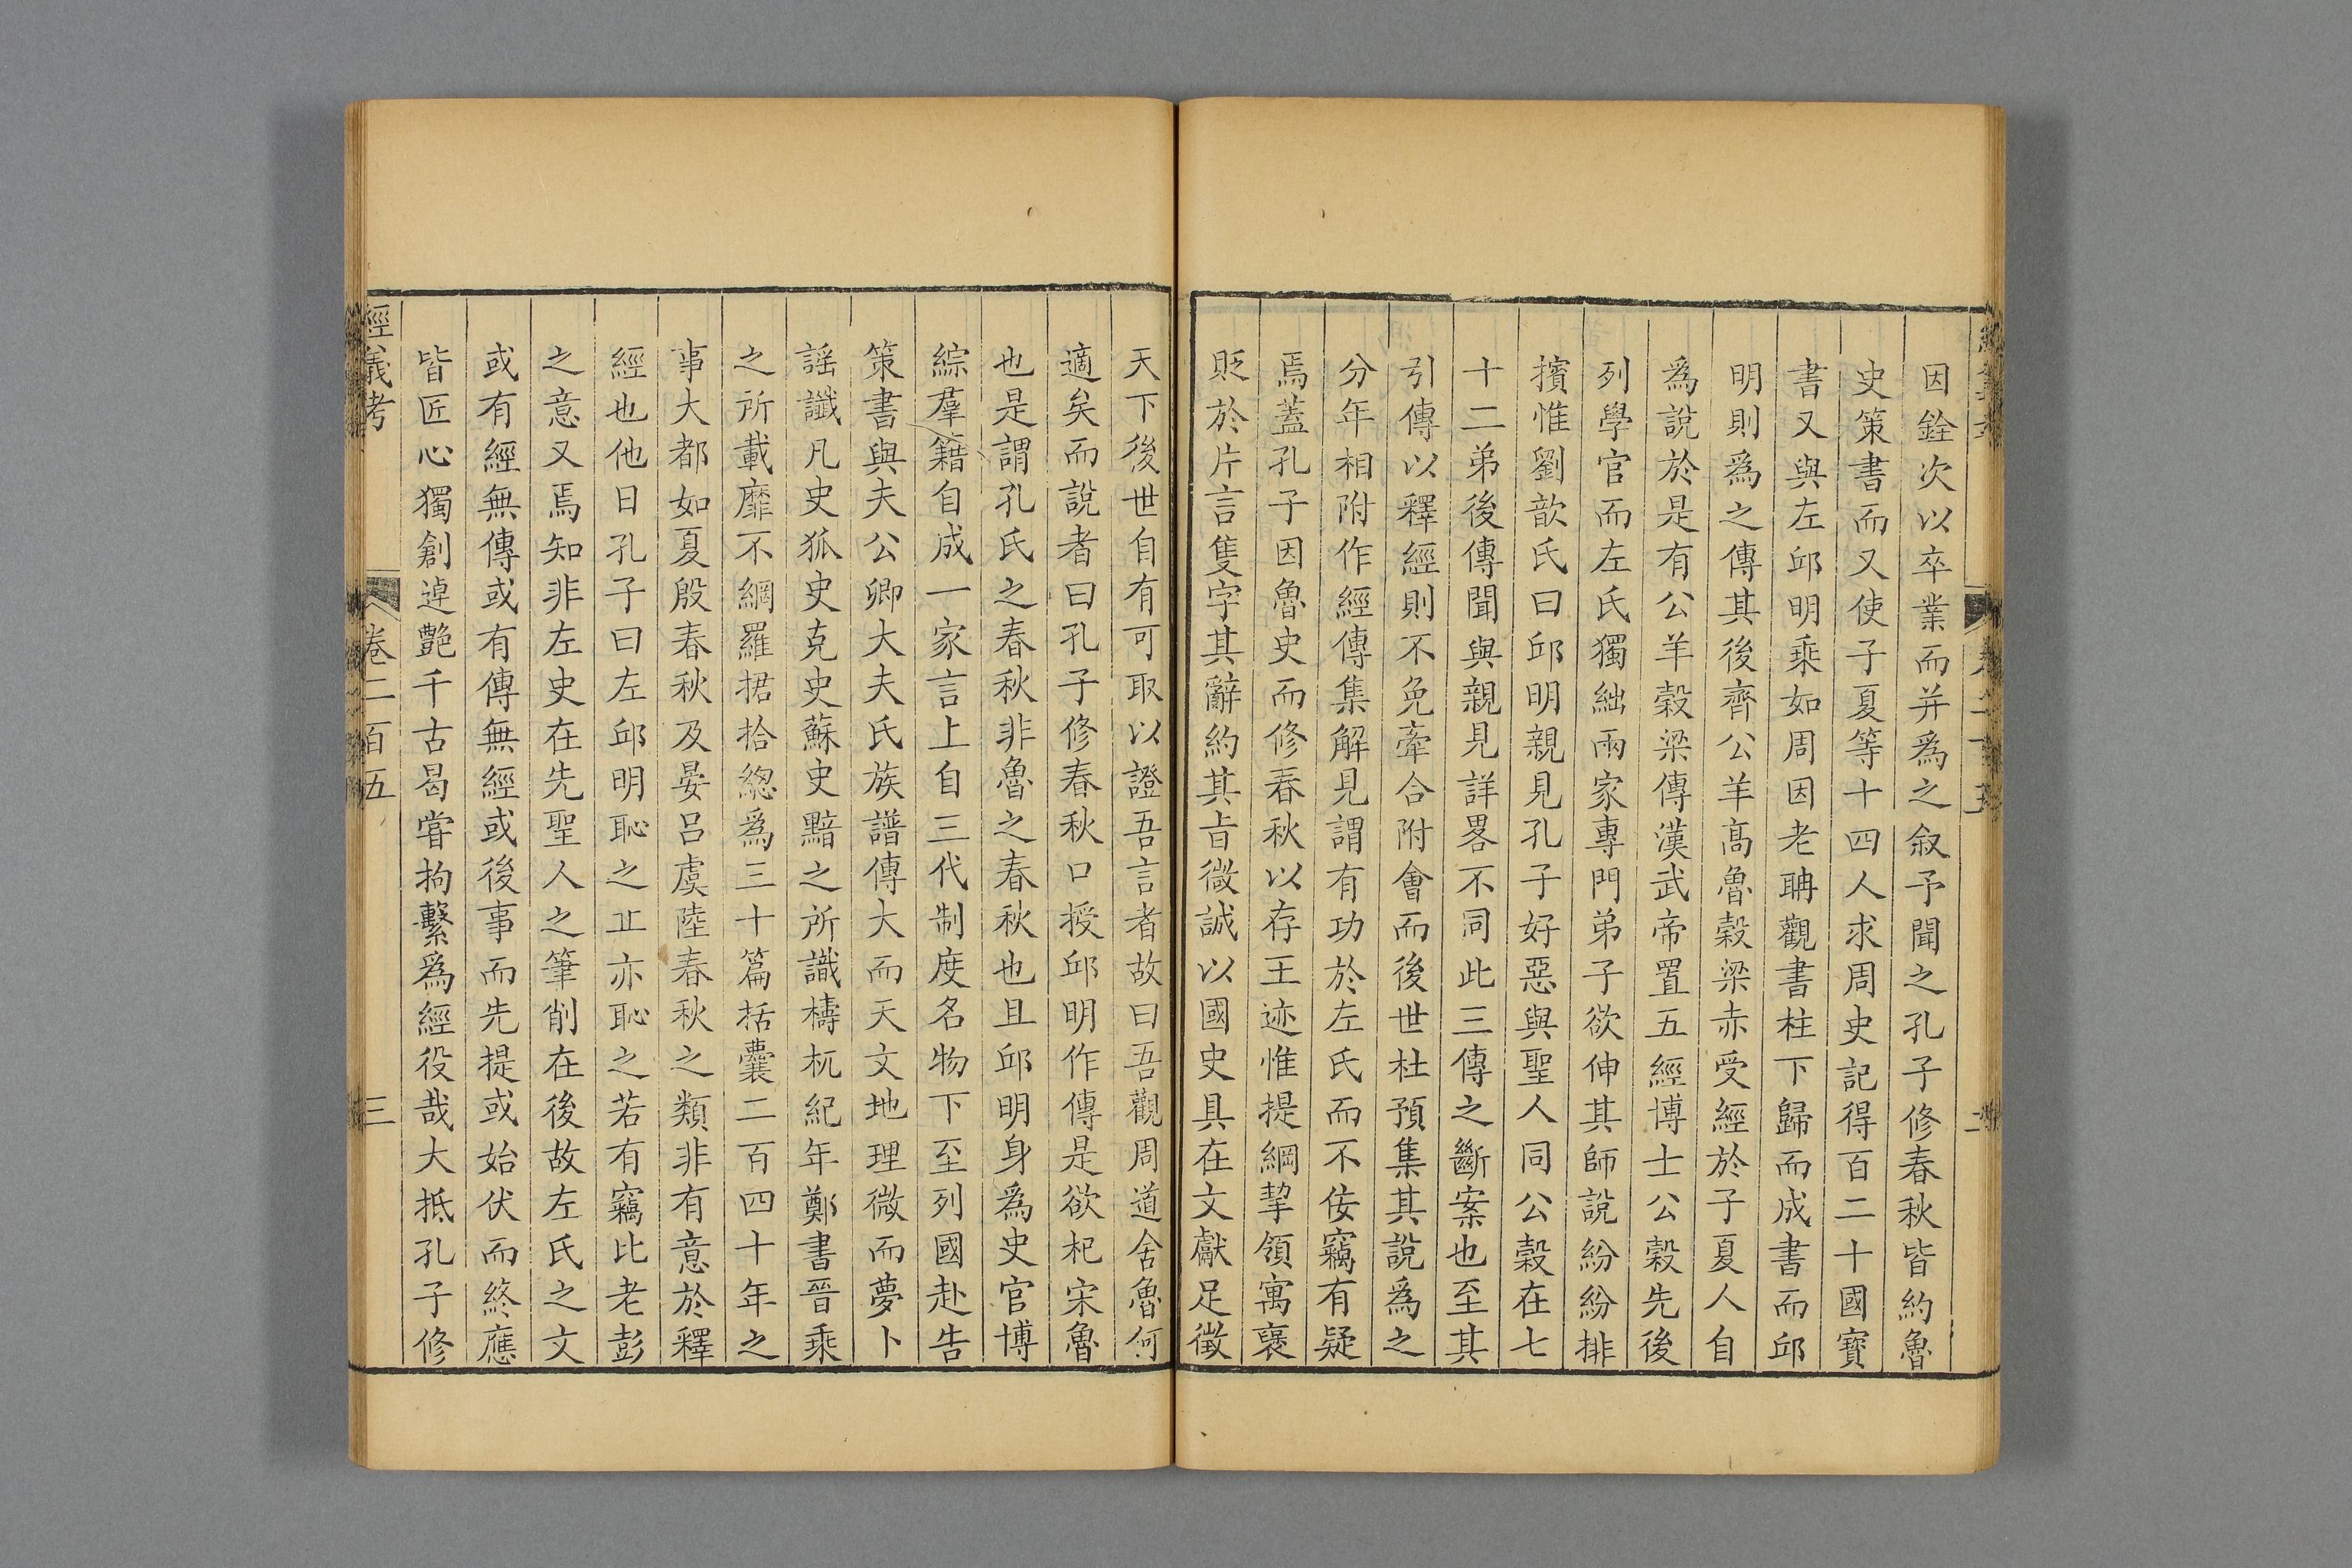 因銓次以卒業而并爲之叙予聞之孔子修春秋皆約魯
史策書而又使子夏等十四人求周史記得百二十國寳
書又與左邱明乘如周因老聃觀書柱下歸而成書而邱
明則爲之傳其後齊公羊髙魯穀梁赤受經於子夏人自
爲說於是有公羊穀梁傳漢武帝置五經博士公穀先後
列學官而左氏獨絀兩家專門弟子欲伸其師說紛紛排
擯惟劉歆氏曰邱明親見孔子好惡與聖人同公穀在七
十二弟後傳聞與親見詳畧不同此三傳之斷案也至其
引傳以釋經則不免牽合附會而後世杜預集其說爲之
分年相附作經傳集解見謂有功於左氏而不佞竊有疑
焉蓋孔子因魯史而修春秋以存王迹惟提綱挈領寓褒
貶於片言隻字其辭約其㫖微誠以國史具在文獻足徵
天下後世自有可取以證吾言者故曰吾觀周道舍魯何
適矣而說者曰孔子修春秋口授邱明作傳是欲杞宋魯
也是謂孔氏之春秋非魯之春秋也且邱明身爲史官博
綜羣籍自成一家言上自三代制度名物下至列國赴告
策書與夫公卿大夫氏族譜傳大而天文地理微而夢卜
謡讖凡史狐史克史蘇史黯之所識檮杌紀年鄭書晉乘
之所載靡不綱羅捃拾緫爲三十篇括囊二百四十年之
事大都如夏殷春秋及晏呂虞陸春秋之類非有意於釋
經也他日孔子曰左邱明恥之丘亦恥之若有竊比老彭
之意又焉知非左史在先聖人之筆削在後故左氏之文
或有經無傳或有傳無經或後事而先提或始伏而終應
皆匠心獨創逴艷千古曷甞拘繫爲經役哉大抵孔子修
經義考
卷二百五
三